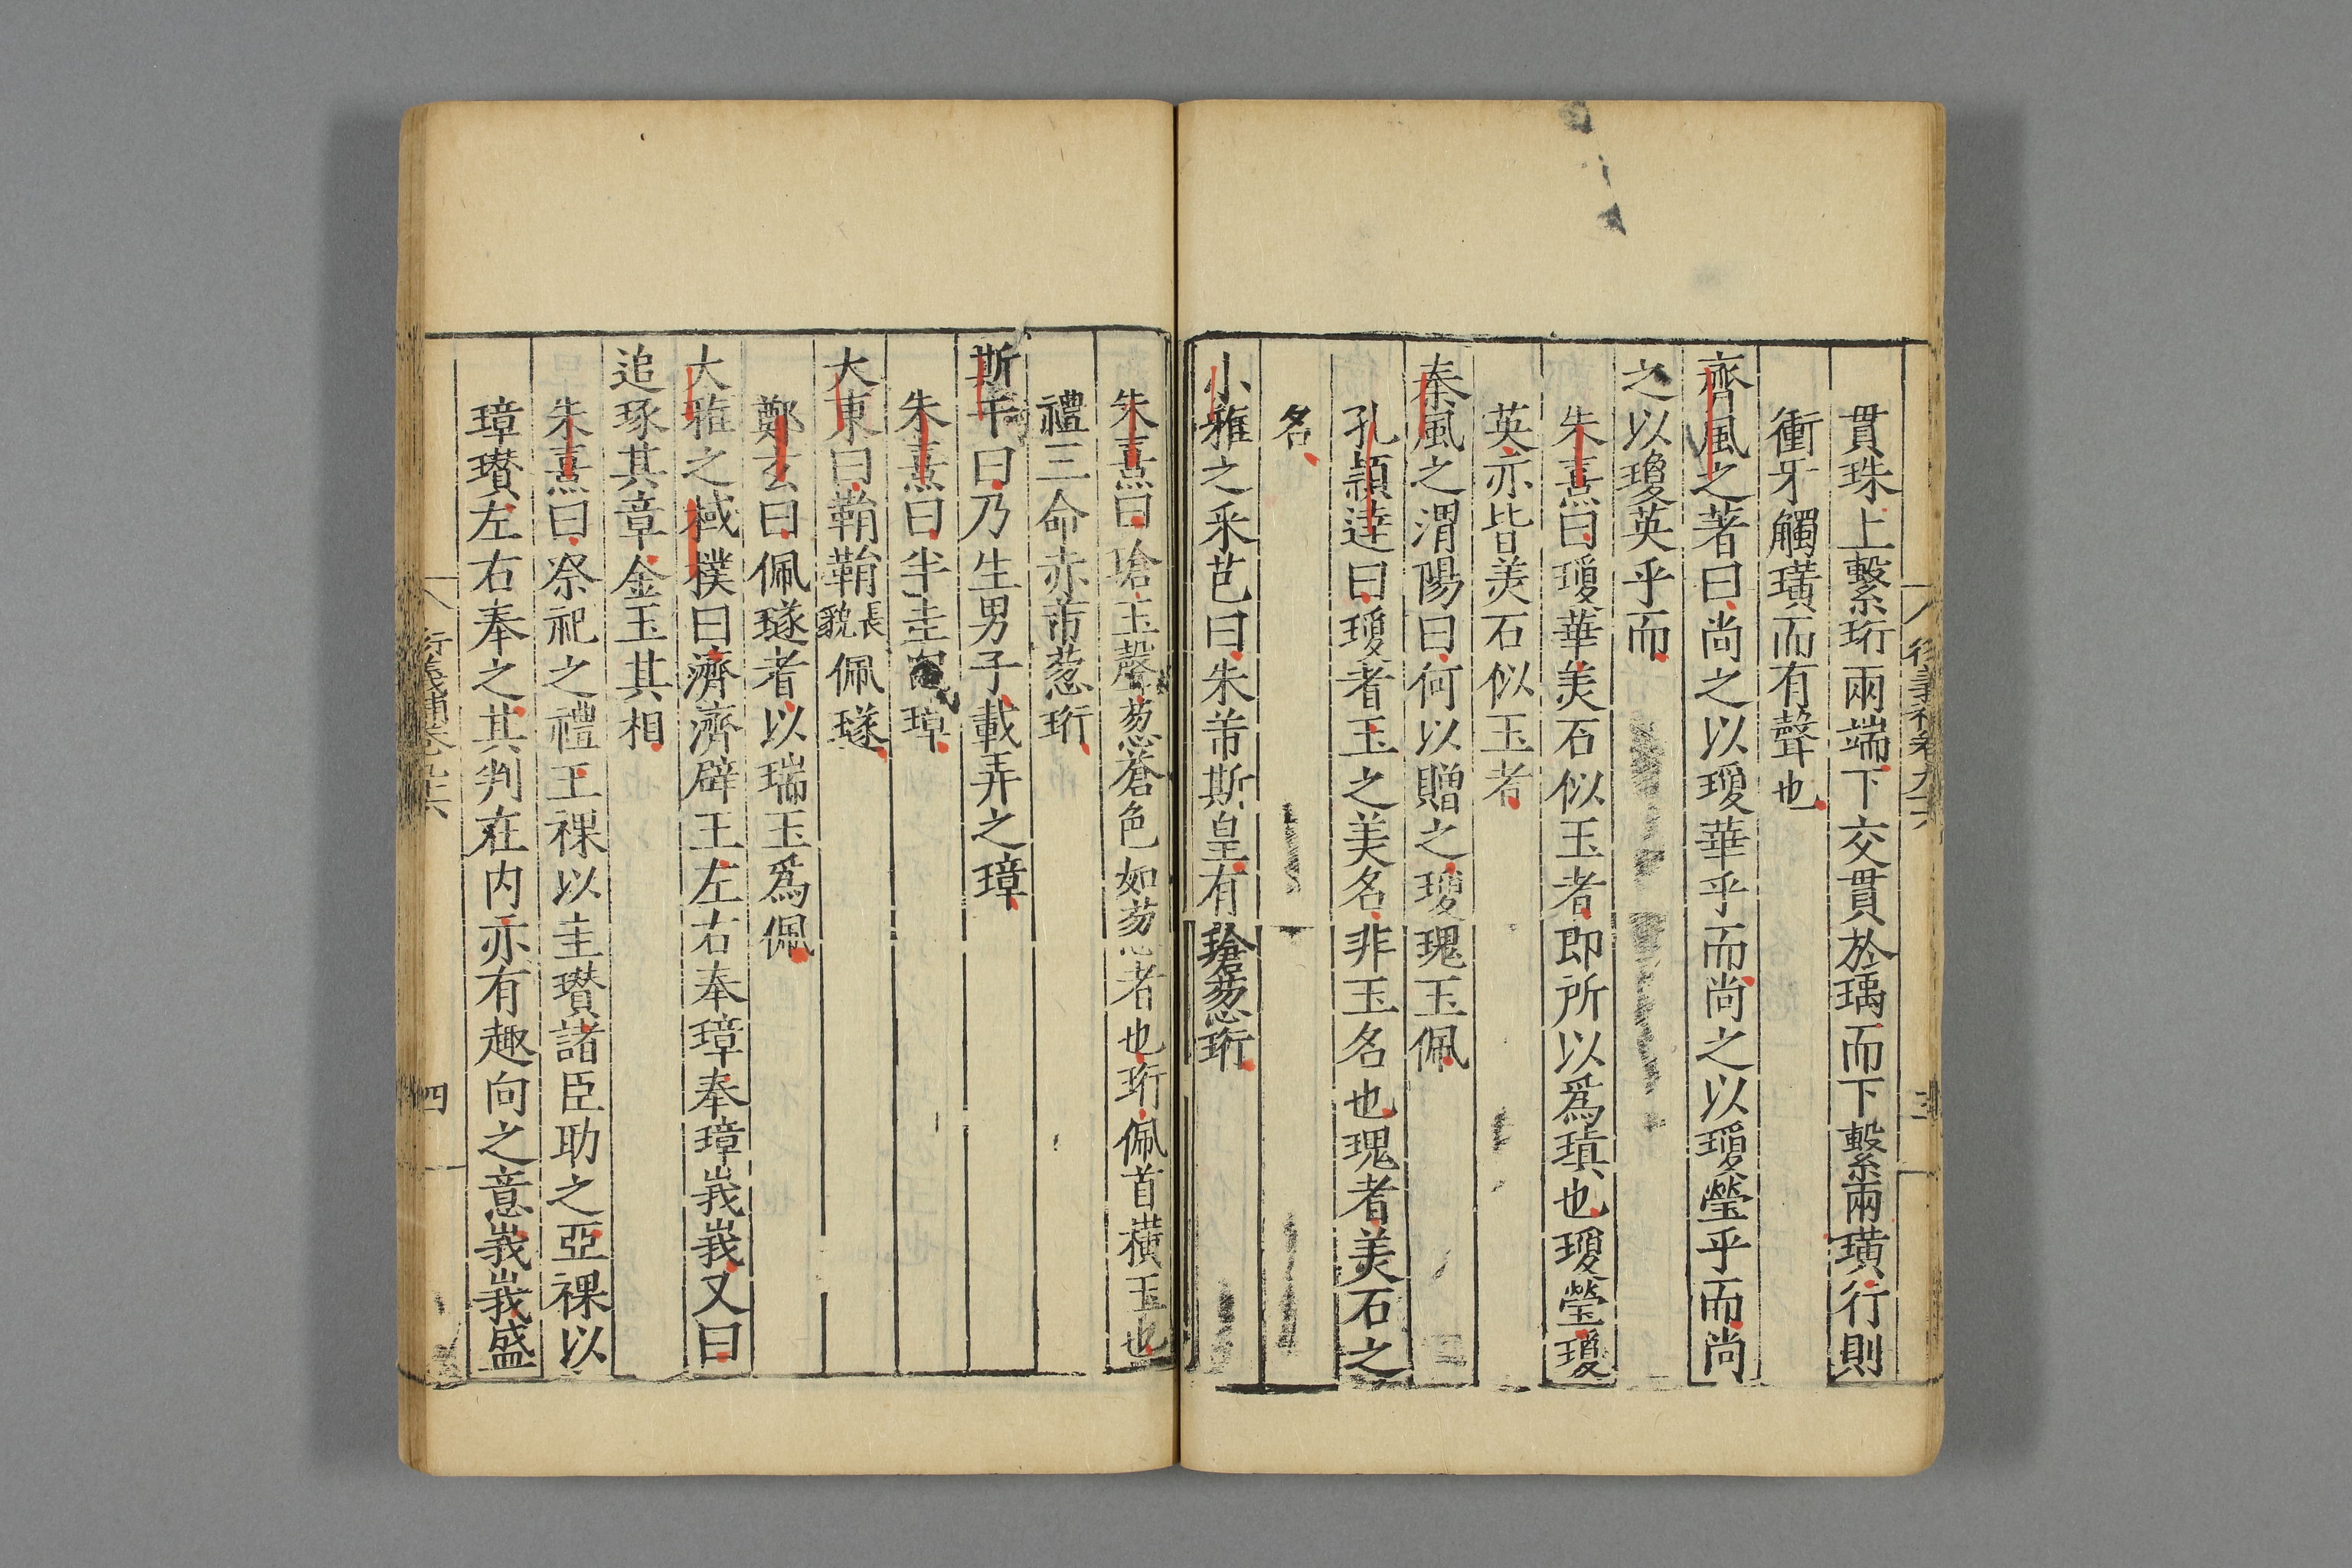 貫珠上繫珩兩端下交貫於瑀而下繫兩璜行則
衝牙觸璜而有聲也
齊風之著曰尚之以瓊華乎而尚之以瓊瑩乎而尚
之以瓊英乎而
朱熹曰瓊華美石似玉者即所以爲瑱也瓊瑩瓊
英亦皆美石似玉者
秦風之渭陽曰何以贈之瓊瑰玉佩
孔頴逹曰瓊者玉之美名非玉名也瑰者美石之
名
小雅之采芑曰朱芾斯皇有瑲葱珩
朱熹曰瑲玉聲葱蒼色如葱者也珩佩首横玉也
禮三命赤芾葱珩
斯干曰乃生男子載弄之璋
朱熹曰半圭曰璋
大東曰鞙鞙長貌佩璲
鄭玄曰佩璲者以瑞玉爲佩
大雅之棫樸曰濟濟辟王左右奉璋奉璋峩峩又曰
追琢其章金玉其相
朱熹曰祭祀之禮王祼以圭瓚諸臣助之亞祼以
璋瓚左右奉之其判在内亦有趣向之意峩峩盛
衍義補卷九十六
四